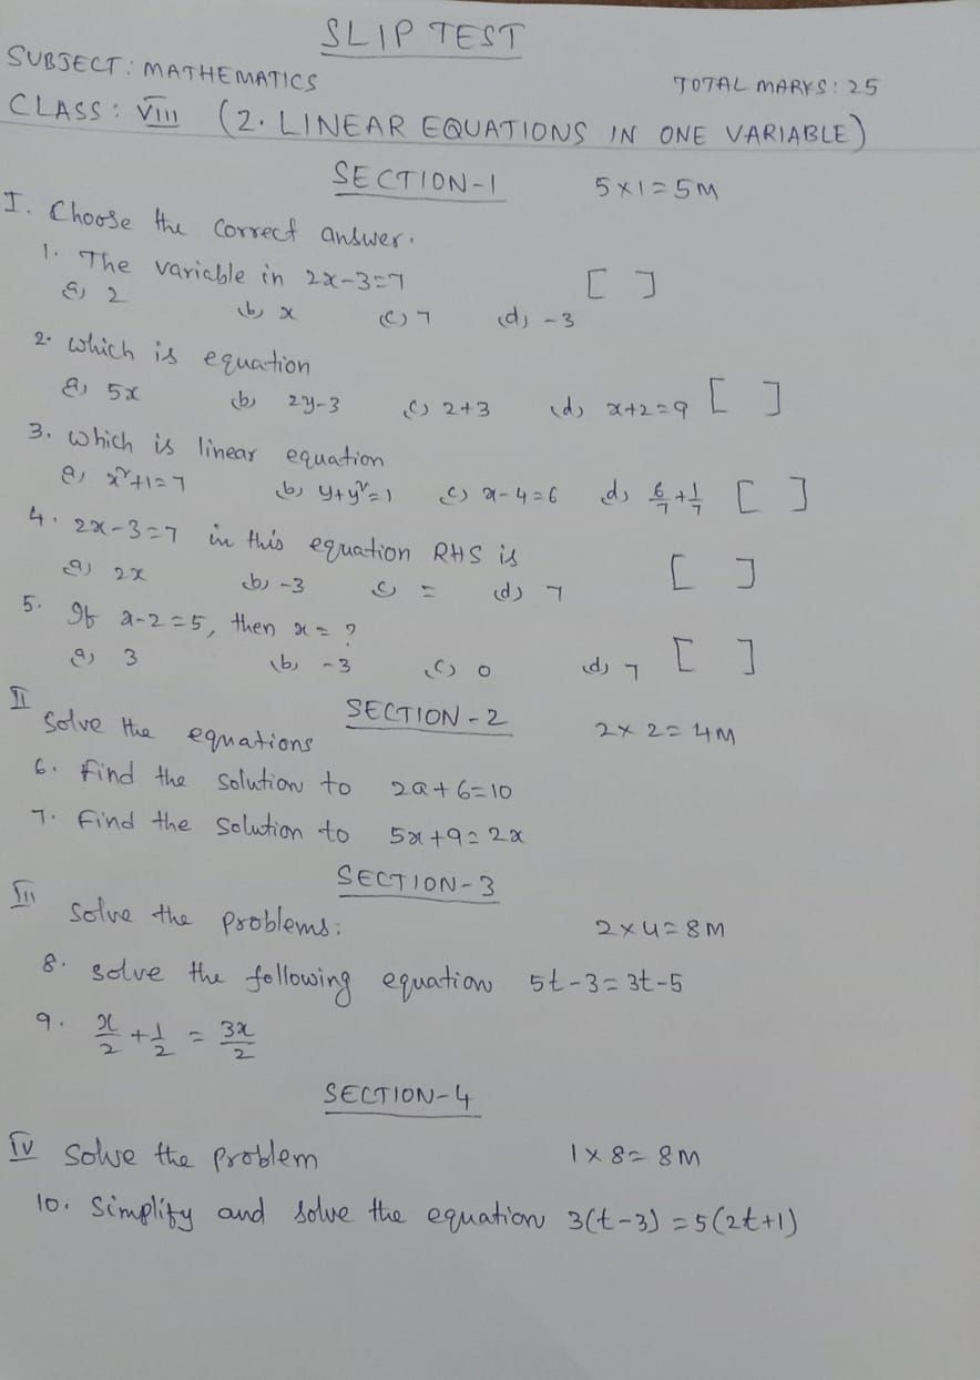 SLIP TEST
SUBJECT: MATHEMATICS TOTAL MARKS: 25
CLASS: VIII (2. LINEAR EQUATIONS IN ONE VARIABLE)
SECTION-1 5×1=5M
I. Choose the correct answer.
1. The variable in 2x-3=7 [ ]
a) 2 (b) x (c) 7 (d) -3
2. which is equation
a) 5x (b) 2y-3 (c) 2+3 (d) x+2=9 [ ]
3. which is linear equation
a) x²+1=7 (b) y+y²=1 (c) x-4=6 (d) 6/7+1/7 [ ]
4. 2x-3=7 in this equation RHS is [ ]
a) 2x (b) -3 (c) = (d) 7
5. If x-2=5, then x=?
a) 3 (b) -3 (c) 0 (d) 7 [ ]
SECTION-2
II Solve the equations 2×2=4M
6. Find the solution to 2a+6=10
7. Find the solution to 5x+9=2x
SECTION-3
III Solve the problems: 2×4=8M
8. solve the following equation 5t-3=3t-5
9. x/2 + 1/2 = 3x/2
SECTION-4
IV Solve the problem 1×8=8M
10. Simplify and solve the equation 3(t-3)=5(2t+1)